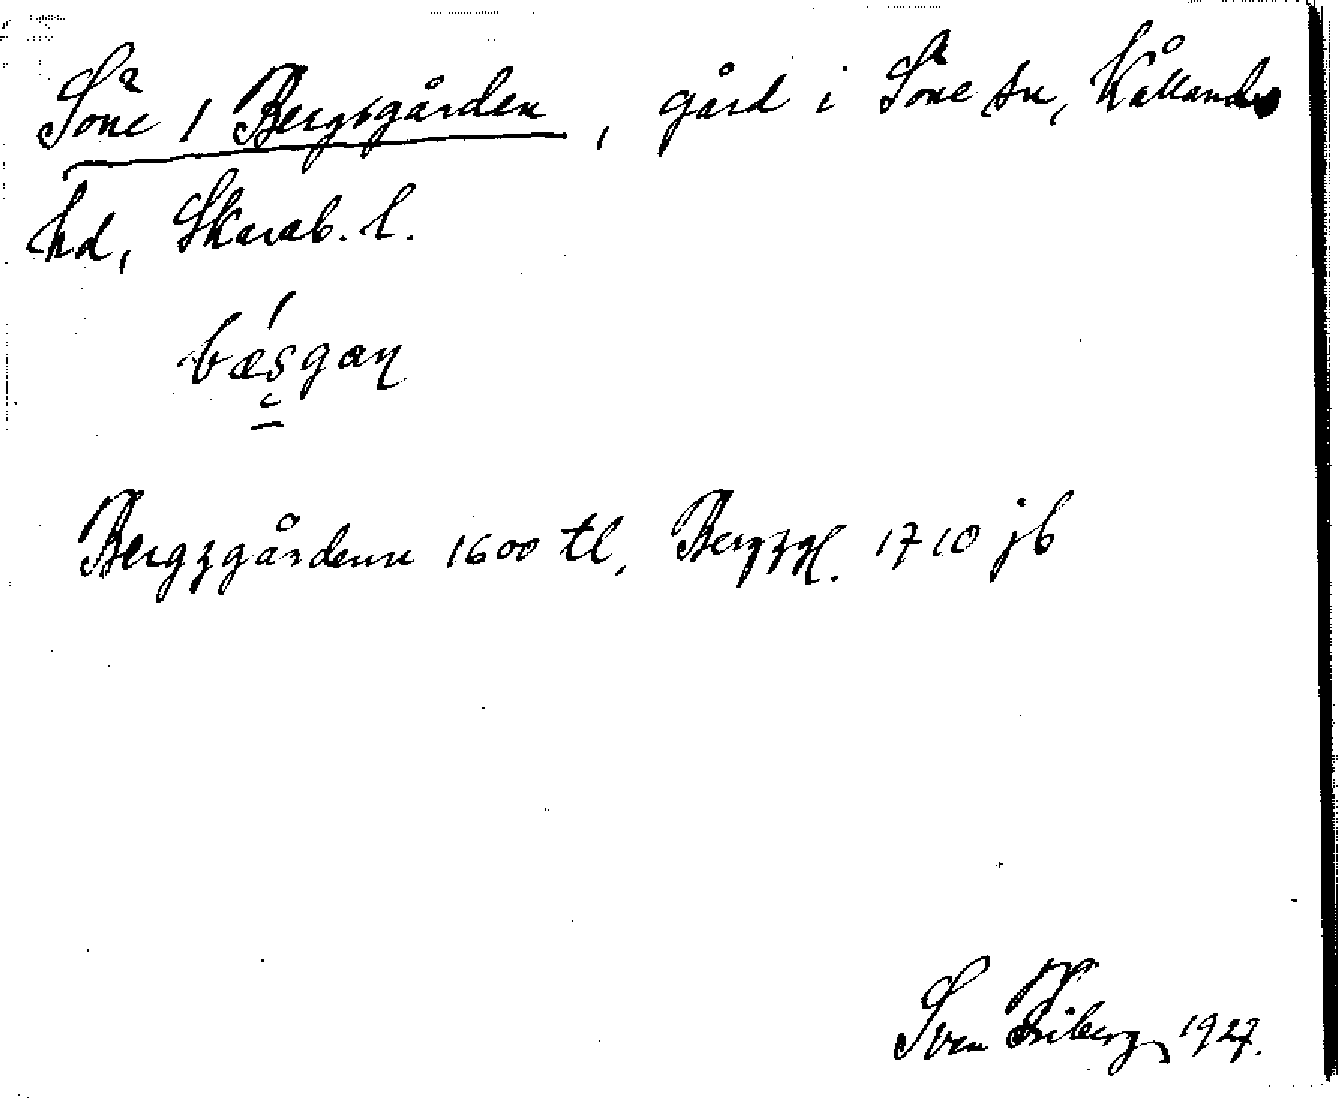 Söne / Bergsgården, gård i Söne sn, Kållands
hd, Skarab. l.
bæsgaɳ
Bergzgårdenn 1600 tl, Bergzg. 1710 jb
Sven Friberg 1927.